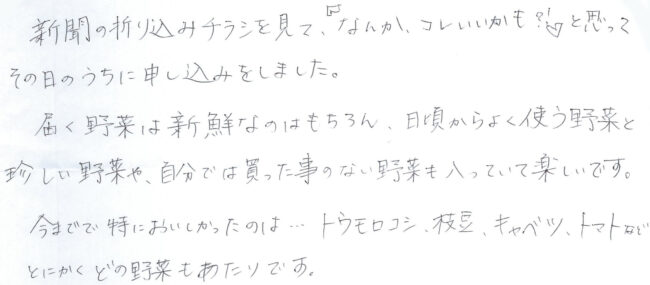 新聞の折り込みチラシを見て、『なんか、コレいいかも?!♡』と思って
その日のうちに申し込みをしました。
届く野菜は新鮮なのはもちろん、日頃からよく使う野菜と
珍しい野菜や、自分では買った事のない野菜も入っていて楽しいです。
今までで特においしかったのは… トウモロコシ、枝豆、キャベツ、トマトなど
とにかくどの野菜もあたりです。